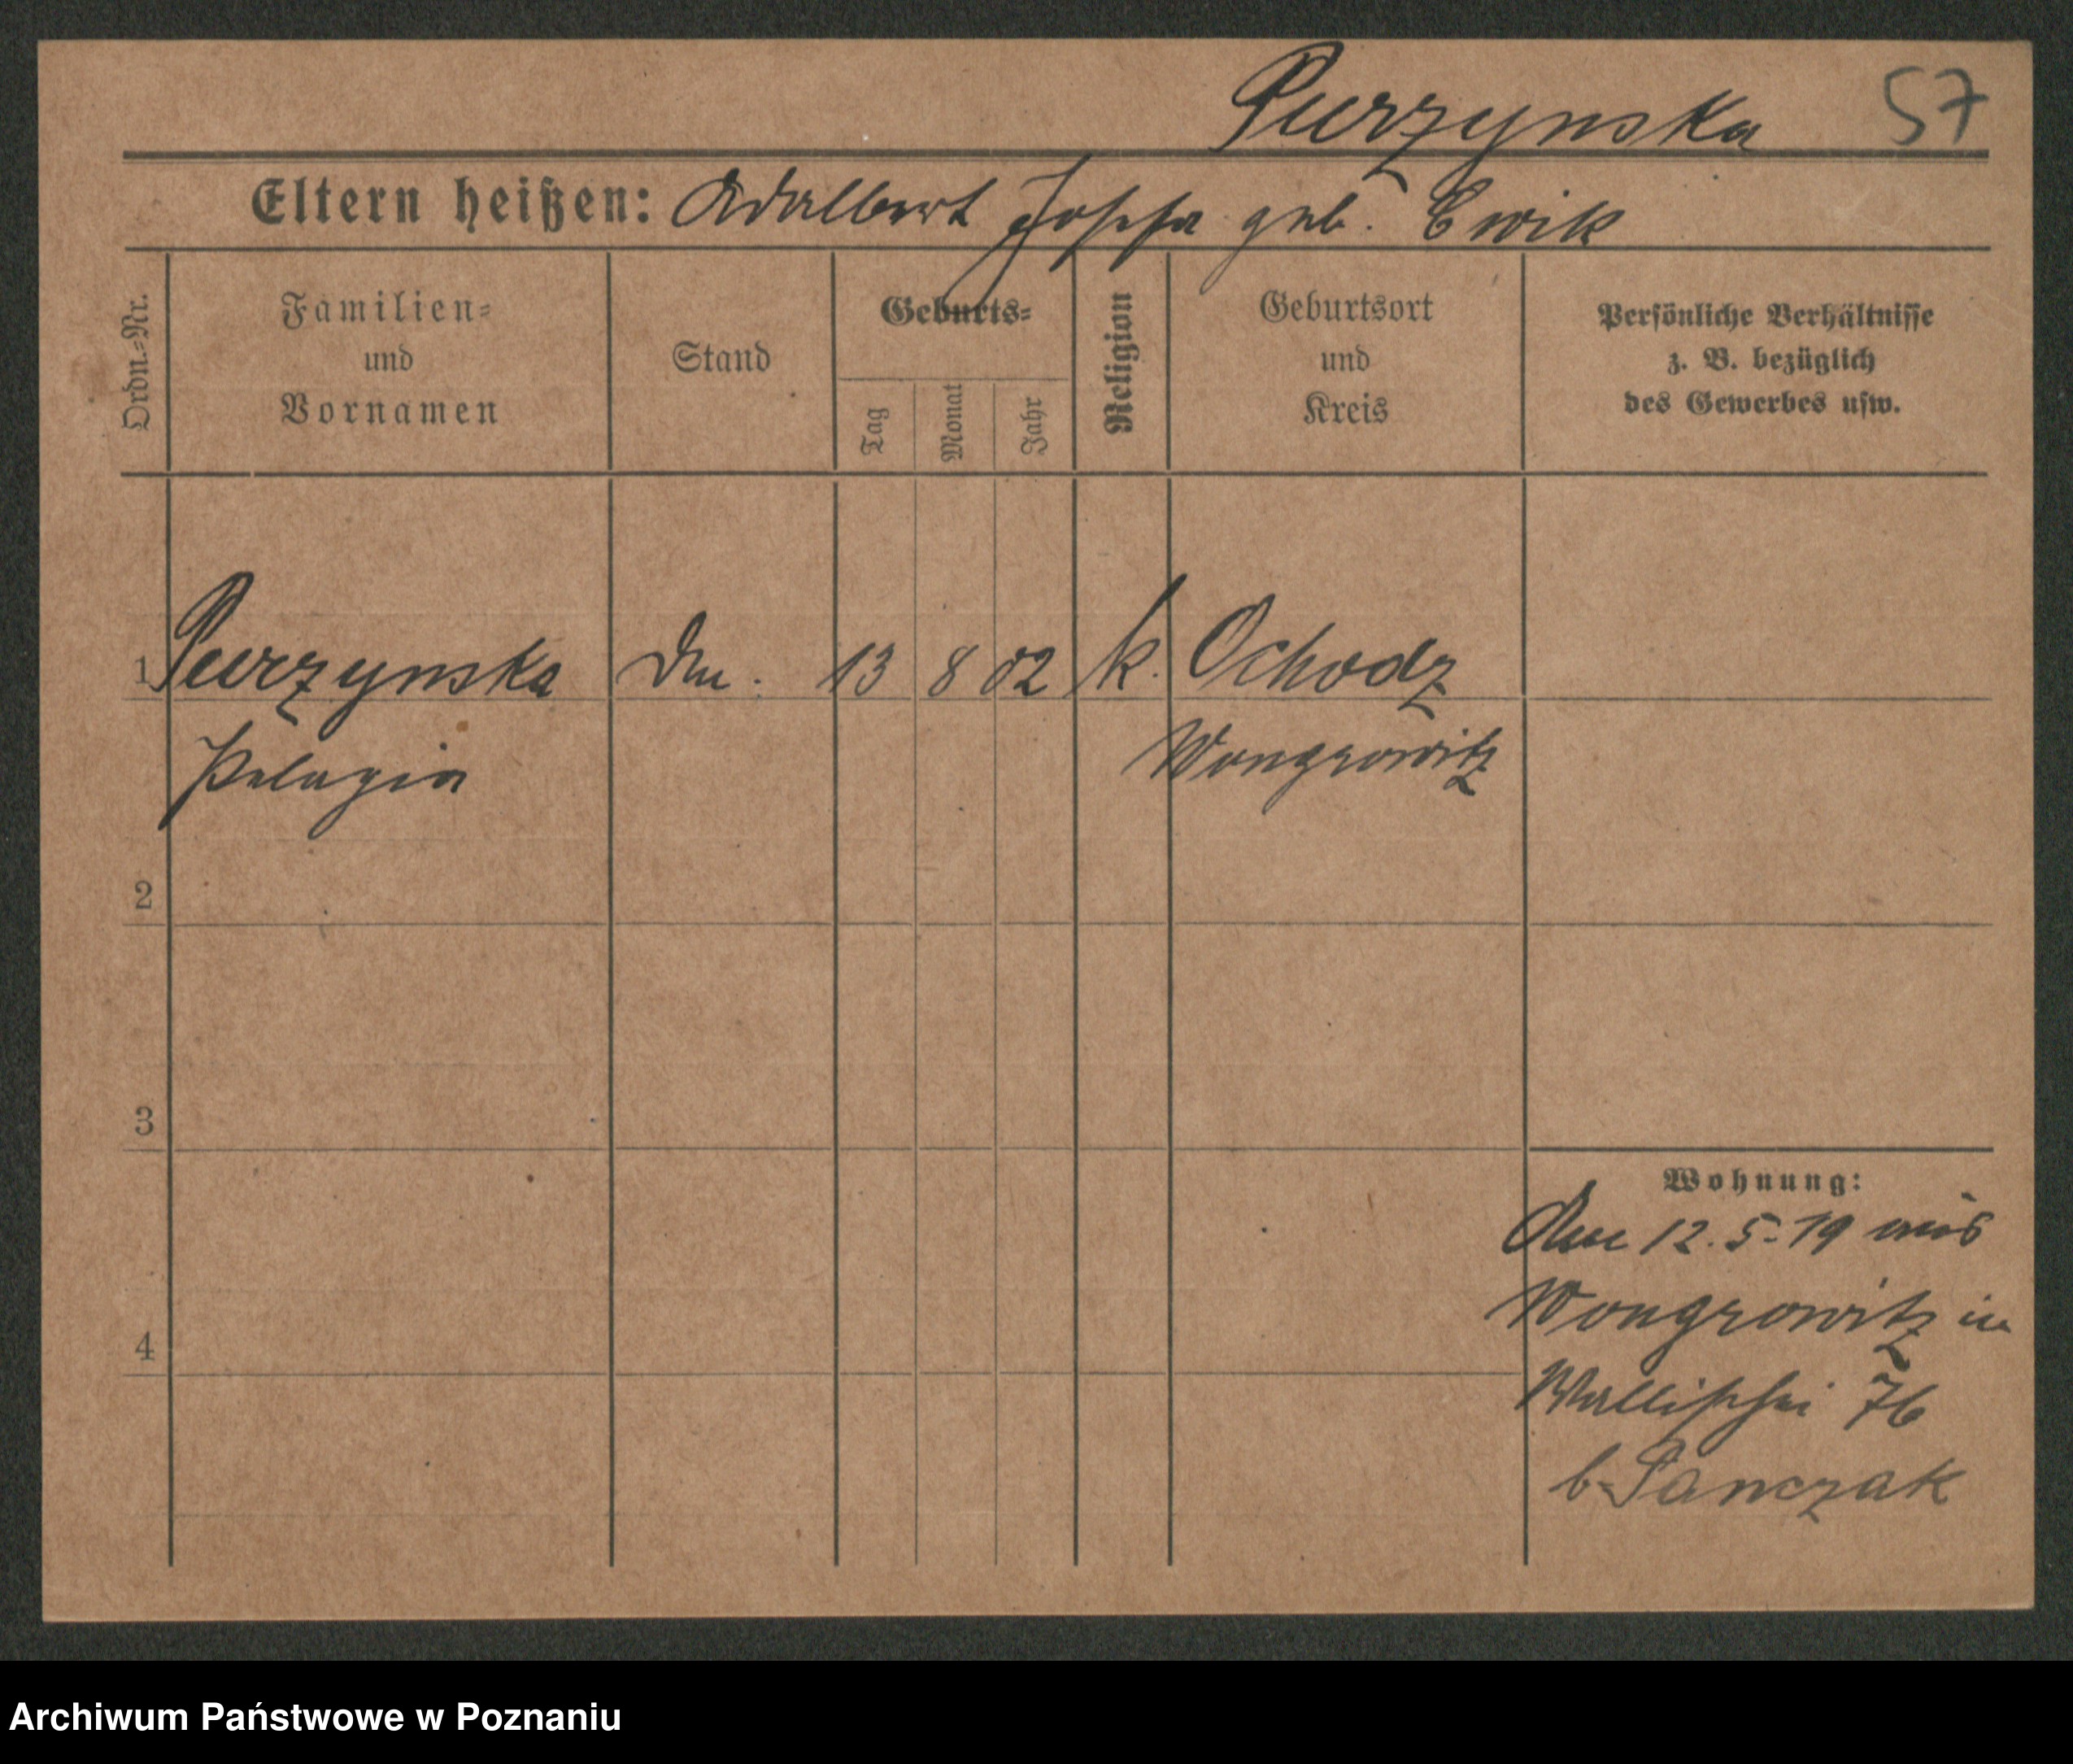 Purzynska 57
Eltern heißen: Adalbert Josefa geb. Cwik
Ordn.-Nr.
Familien-
und
Vornamen
Stand
Geburts-
Tag
Monat
Jahr
Religion
Geburtsort
und
Kreis
Persönliche Verhältnisse
z. B. bezüglich
des Gewerbes usw.
1 Purzynska 13 8 02 k. Ochodz
Pelagia Wongrowitz
2
3
Wohnung:
12.5.19 aus
Wongrowitz in
4
Wallischei 76
b. Panczak
Archiwum Państwowe w Poznaniu